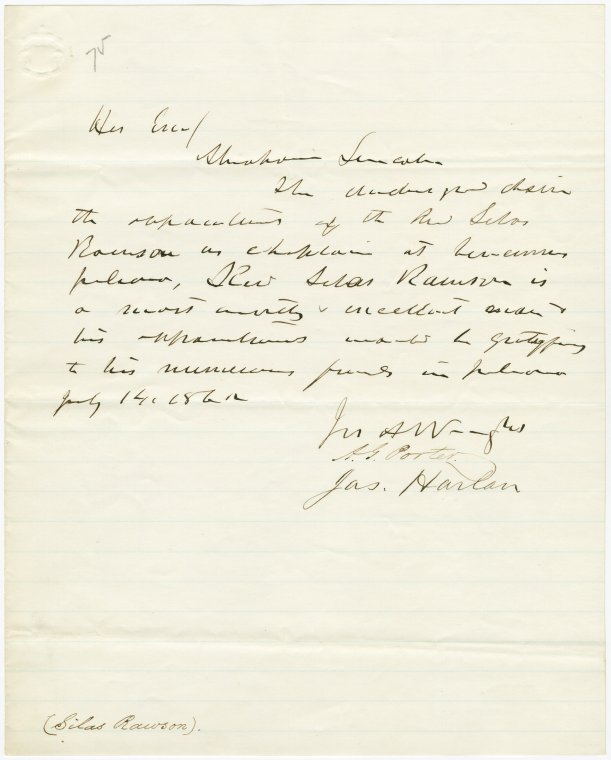 75
His Excel
Abraham Lincoln
The undersigned desire
the appointment of the Rev Silas
Rawson as chaplain at
Indiana, Rev Silas Rawson is
a most worthy & excellent man &
his appointment would be gratifying
to his numerous friends in Indiana
July 14, 1862
Jos A Wright
A. G. Porter
Jas. Harlan
(Silas Rawson).